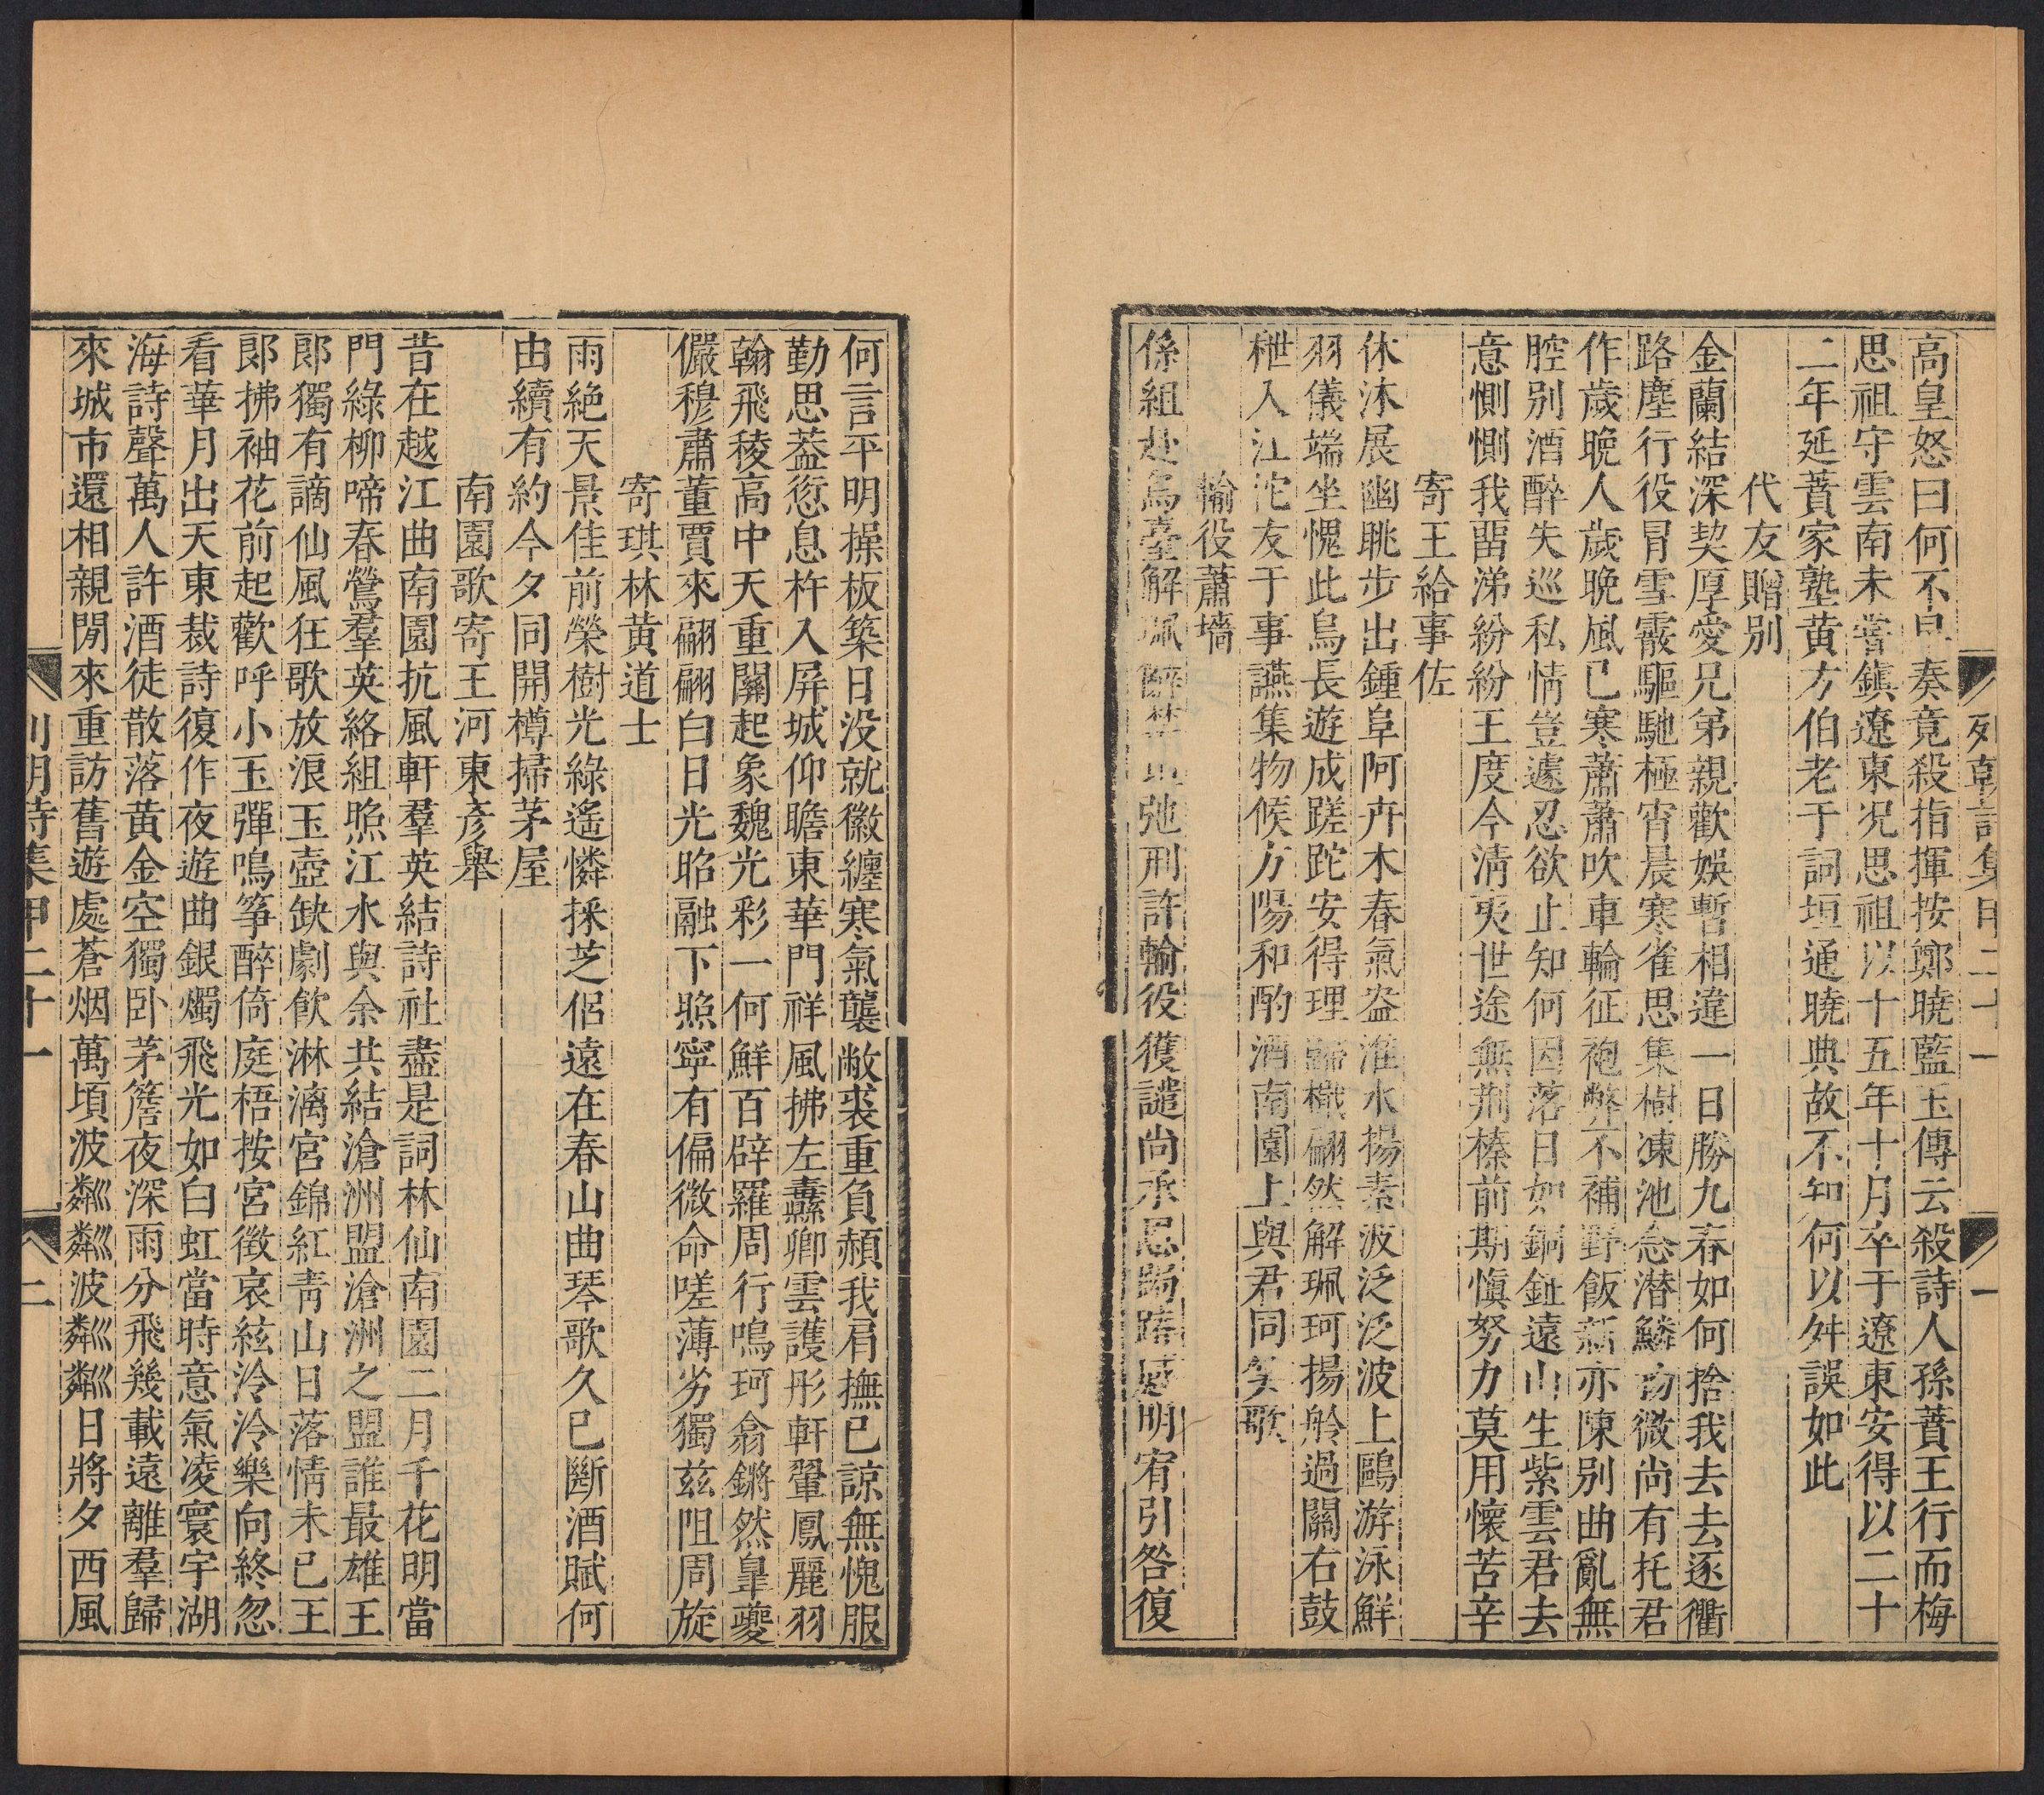 高皇怒曰何不早奏竟殺指揮按鄭曉藍玉傳云殺詩人孫蕡王行而梅
思祖守雲南未嘗鎮遼東況思祖以十五年十月卒于遼東安得以二十
二年延蕡家塾黄方伯老于詞垣通曉典故不知何以舛誤如此
代友贈别
金蘭結深契厚愛兄弟親歡娛暫相違一日勝九春如何捨我去去逐衢
路塵行役冐雪霰驅馳極宵晨寒雀思集樹凍池念潜鱗物微尚有托君
作歲晚人歲晚風已寒蕭蕭吹車輪征袍弊不補野飯新亦陳别曲亂無
腔别酒醉失巡私情豈遽忍欲止知何因落日如銅鉦遠山生紫雲君去
意惻惻我畱涕紛紛王度今淸夷世途無荆榛前期愼努力莫用懷苦辛
寄王給事佐
休沐展幽眺步出鍾阜阿卉木春氣盎淮水揚素波泛泛波上鷗游泳鮮
羽儀端坐愧此烏長遊成蹉跎安得理歸檝翩然解珮珂揚舲過關右鼓
枻入江沱友于事讌集物候方陽和酌酒南園上與君同笑歌
輸役蕭墻
係組赴烏臺解珮辭弛刑許輸役獲譴尚承恩跼蹐感明宥引咎復
何言平明操板築日没就徽纏寒氣襲敝裘重負頳我肩撫已諒無愧服
勤思葢愆息杵入屏城仰瞻東華門祥風拂左纛卿雲護彤軒翬鳳麗羽
翰飛稜高中天重闕起象魏光彩一何鮮百辟羅周行鳴珂翕鏘然臯夔
儼穆肅董賈來翩翩白日光昭融下照寧有偏微命嗟薄劣獨兹阻周旋
寄琪林黄道士
雨絶天景佳前榮樹光綠遙憐採芝侣遠在春山曲琴歌久已斷酒賦何
由續有約今夕同開樽掃茅屋
南園歌寄王河東彥舉
昔在越江曲南園抗風軒羣英結詩社盡是詞林仙南園二月千花明當
門綠柳啼春鶯羣英絡組照江水與余共結滄洲盟滄洲之盟誰最雄王
郞獨有謫仙風狂歌放浪玉壺缺劇飮淋漓宮錦紅靑山日落情未已王
郞拂袖花前起歡呼小玉彈鳴筝醉倚庭梧按宮徴哀絃泠泠樂向終忽
看華月出天東裁詩復作夜遊曲銀燭飛光如白虹當時意氣凌寰宇湖
海詩聲萬人許酒徒散落黄金空獨卧茅簷夜深雨分飛幾載遠離羣歸
來城市還相親閒來重訪舊遊處蒼烟萬頃波粼粼波粼粼日將夕西風
列朝詩集甲二十一 二